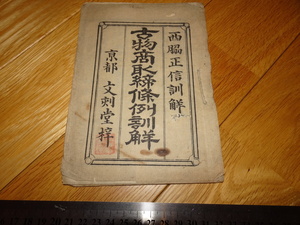 西脇正信訓解
古物商取締條例訓解
京都 文則堂梓